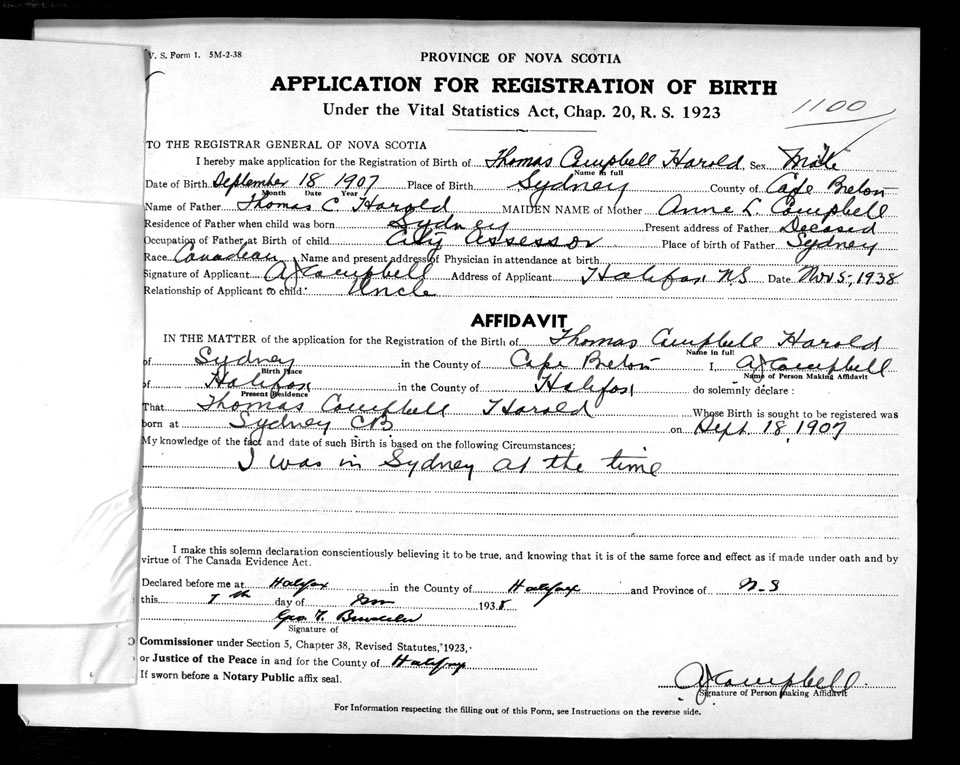 V. S. Form 1. 5M-2-38
PROVINCE OF NOVA SCOTIA
APPLICATION FOR REGISTRATION OF BIRTH
Under the Vital Statistics Act, Chap. 20, R. S. 1923
1100
TO THE REGISTRAR GENERAL OF NOVA SCOTIA
I hereby make application for the Registration of Birth of Thomas Campbell Harold Sex Male
Name in full
Date of Birth September 18 1907 Place of Birth Sydney County of Cape Breton
Month Date Year
Name of Father Thomas C. Harold MAIDEN NAME of Mother Anne L. Campbell
Residence of Father when child was born Sydney Present address of Father Deceased
Occupation of Father at Birth of child City Assessor Place of birth of Father Sydney
Race Canadian Name and present address of Physician in attendance at birth
Signature of Applicant AJ Campbell Address of Applicant Halifax NS Date Nov 5, 1938
Relationship of Applicant to child. Uncle
AFFIDAVIT
IN THE MATTER of the application for the Registration of the Birth of Thomas Campbell Harold
Name in full
of Sydney in the County of Cape Breton I, AJ Campbell
Birth Place Name of Person Making Affidavit
of Halifax in the County of Halifax do solemnly declare :
Present Residence
That Thomas Campbell Harold Whose Birth is sought to be registered was
born at Sydney CB on Sept. 18, 1907
My knowledge of the fact and date of such Birth is based on the following Circumstances:
I was in Sydney at the time
I make this solemn declaration conscientiously believing it to be true, and knowing that it is of the same force and effect as if made under oath and by
virtue of The Canada Evidence Act.
Declared before me at Halifax in the County of Halifax and Province of N.S
this 7th day of Nov 1938
Geo. T.
Signature of
Commissioner under Section 5, Chapter 38, Revised Statutes, 1923,
or Justice of the Peace in and for the County of Halifax
If sworn before a Notary Public affix seal.
AJ Campbell
Signature of Person making Affidavit
For Information respecting the filling out of this Form, see Instructions on the reverse side.